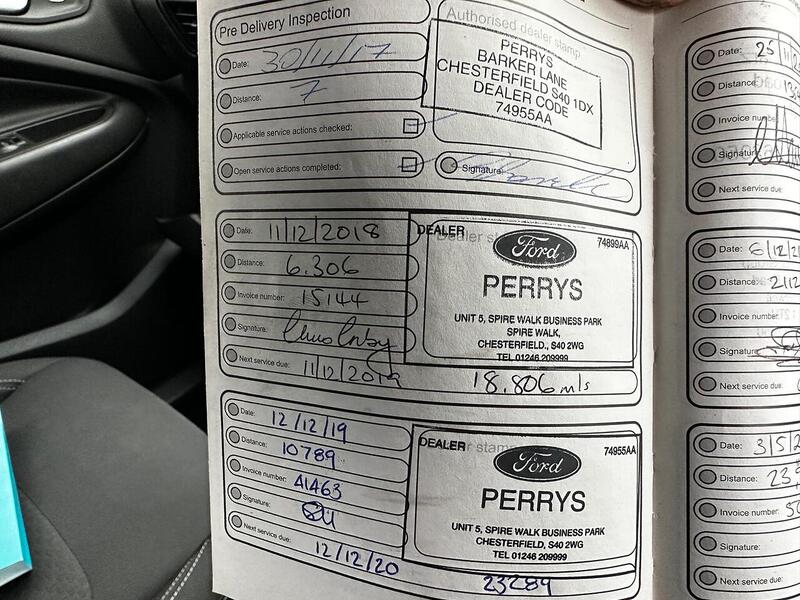 Pre Delivery Inspection
Authorised dealer stamp
Date: 30/11/17
Distance: 7
Applicable service actions checked:
Open service actions completed:
PERRYS
BARKER LANE
CHESTERFIELD S40 1DX
DEALER CODE
74955AA
Signature
Date: 11/12/2018
Distance: 6.306
Invoice number: 15144
Signature:
Next service due: 11/12/2019
18.806 mls
DEALER
Dealer st
74899AA
Ford
PERRYS
UNIT 5, SPIRE WALK BUSINESS PARK
SPIRE WALK,
CHESTERFIELD., S40 2WG
TEL 01246 209999
Date: 12/12/19
Distance: 10789
Invoice number: 41463
Signature:
Next service due: 12/12/20
23289
DEALER
stamp
74955AA
Ford
PERRYS
UNIT 5, SPIRE WALK BUSINESS PARK
CHESTERFIELD, S40 2WG
TEL 01246 209999
Date: 25/11/2
Distance: 13
Invoice numb
Signatur
Next service due:
Date: 6/12/2
Distance: 212
Invoice number:
Signature
Next service due:
Date: 3/5/2
Distance: 23
Invoice number: 5
Signature:
Next service due: